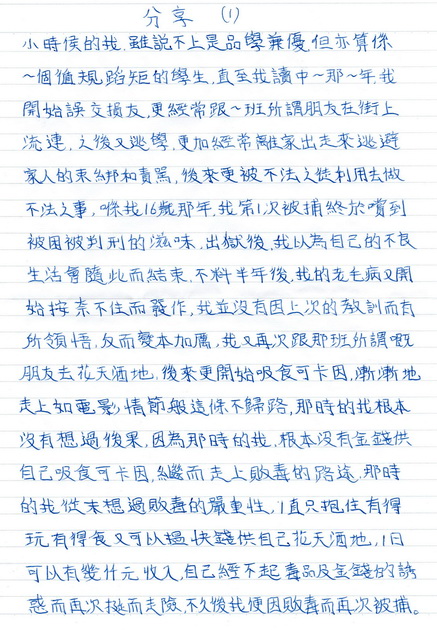 分享 (1)
小時候的我,雖説不上是品學兼優,但亦算係
一個循規蹈矩的學生,直至我讀中一那一年,我
開始誤交損友,更經常跟一班所謂朋友在街上
流連,之後又逃學,更加經常離家出走來逃避
家人的束綁和責罵,後來更被不法之徒利用去做
不法之事,喺我16歲那年,我第1次被捕終於嚐到
被困被判刑的滋味,出獄後,我以為自己的不良
生活會隨此而結束,不料半年後,我的老毛病又開
始按奈不住而發作,我並沒有因上次的教訓而有
所領悟,反而變本加厲,我又再次跟那班所謂嘅
朋友去花天酒地,後來更開始吸食可卡因,漸漸地
走上如電影情節般這條不歸路,那時的我根本
沒有想過後果,因為那時的我,根本沒有金錢供
自己吸食可卡因,繼而走上販毒的路途,那時
的我從未想過販毒的嚴重性,1直只抱住有得
玩有得食又可以搵快錢供自己花天酒地,1日
可以有幾仟元收入,自己經不起毒品及金錢的誘
惑而再次挺而走險,不久後我便因販毒而再次被捕。